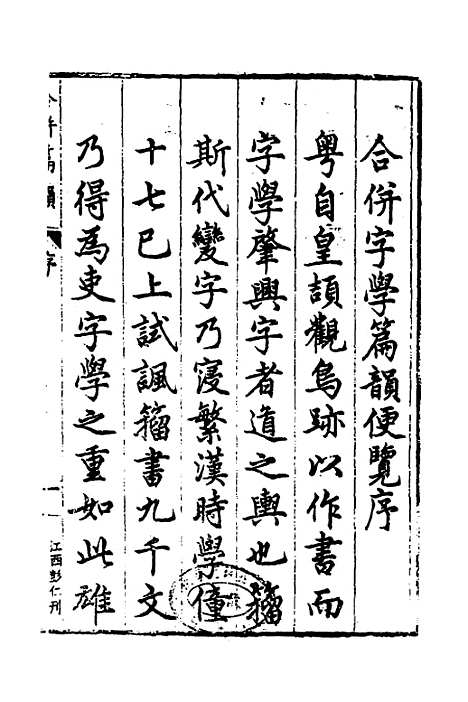 合併字學篇韻便覽序
粤自皇頡觀鳥跡以作書而
字學肇興字者道之輿也籀
斯代變字乃寖繁漢時學僮
十七已上試諷籀書九千文
乃得為吏字學之重如此雖
合併篇韻 序 一 江西彭仁刊